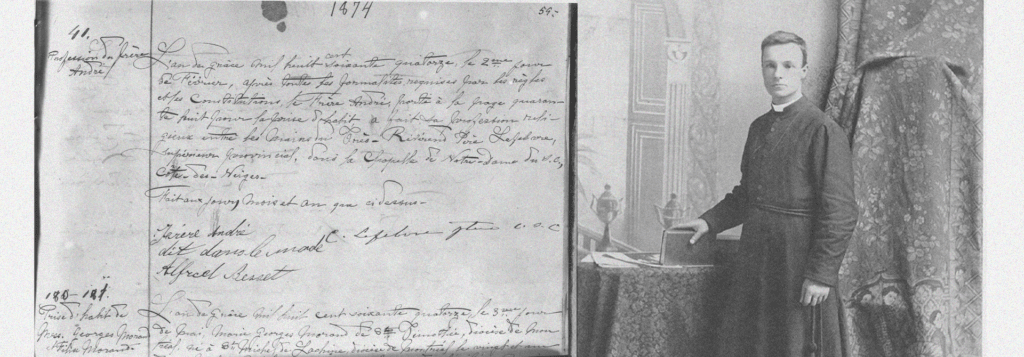 1874
59.
41.
Profession du frère
André
L'an de grâce mil huit cent soixante quatorze, le 2me jour
de Février, après toutes les formalités requises par les règles
et les Constitutions, le Frère André, porté à la page quaran
te huit pour la prise d'habit a fait sa profession reli
gieuse entre les mains du Très-Révérend Père Lefebvre,
supérieur provincial, dans la Chapelle de Notre-Dame du S.C.
Côte-des-Neiges
Fait aux jour, mois et an que ci dessus-
Frère André
C. Lefebvre ptre c.s.c
dit dans le monde
Alfred Besset
180-181.
Prise d'habit de
Georges Morand
L'an de grâce mil huit cent soixante quatorze, le 3me jour
de Mai, Marie Georges Morand de Ste diocèse de Mon
né à St Michel de Lachine diocèse de Montréal le